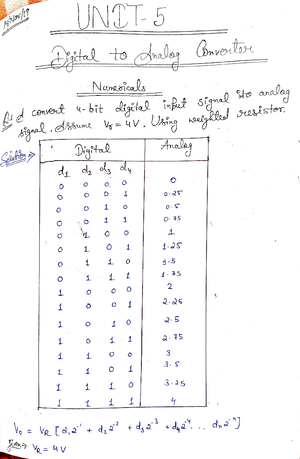 UNIT-5
Digital to Analog Converter
Numericals
Q1 convert 4-bit digital input signal into analog
signal. Assume VR = 4V. Using weighted resistor.
Solution
Digital Analog
d1 d2 d3 d4
0 0 0 0 0
0 0 0 1 0.25
0 0 1 0 0.5
0 0 1 1 0.75
0 1 0 0 1
0 1 0 1 1.25
0 1 1 0 1.5
0 1 1 1 1.75
1 0 0 0 2
1 0 0 1 2.25
1 0 1 0 2.5
1 0 1 1 2.75
1 1 0 0 3
1 1 0 1 3.5
1 1 1 0 3.75
1 1 1 1 4
V0 = VR [d1 2⁻¹ + d2 2⁻² + d3 2⁻³ + d4 2⁻⁴ ... dn 2⁻ⁿ]
Given → VR = 4V